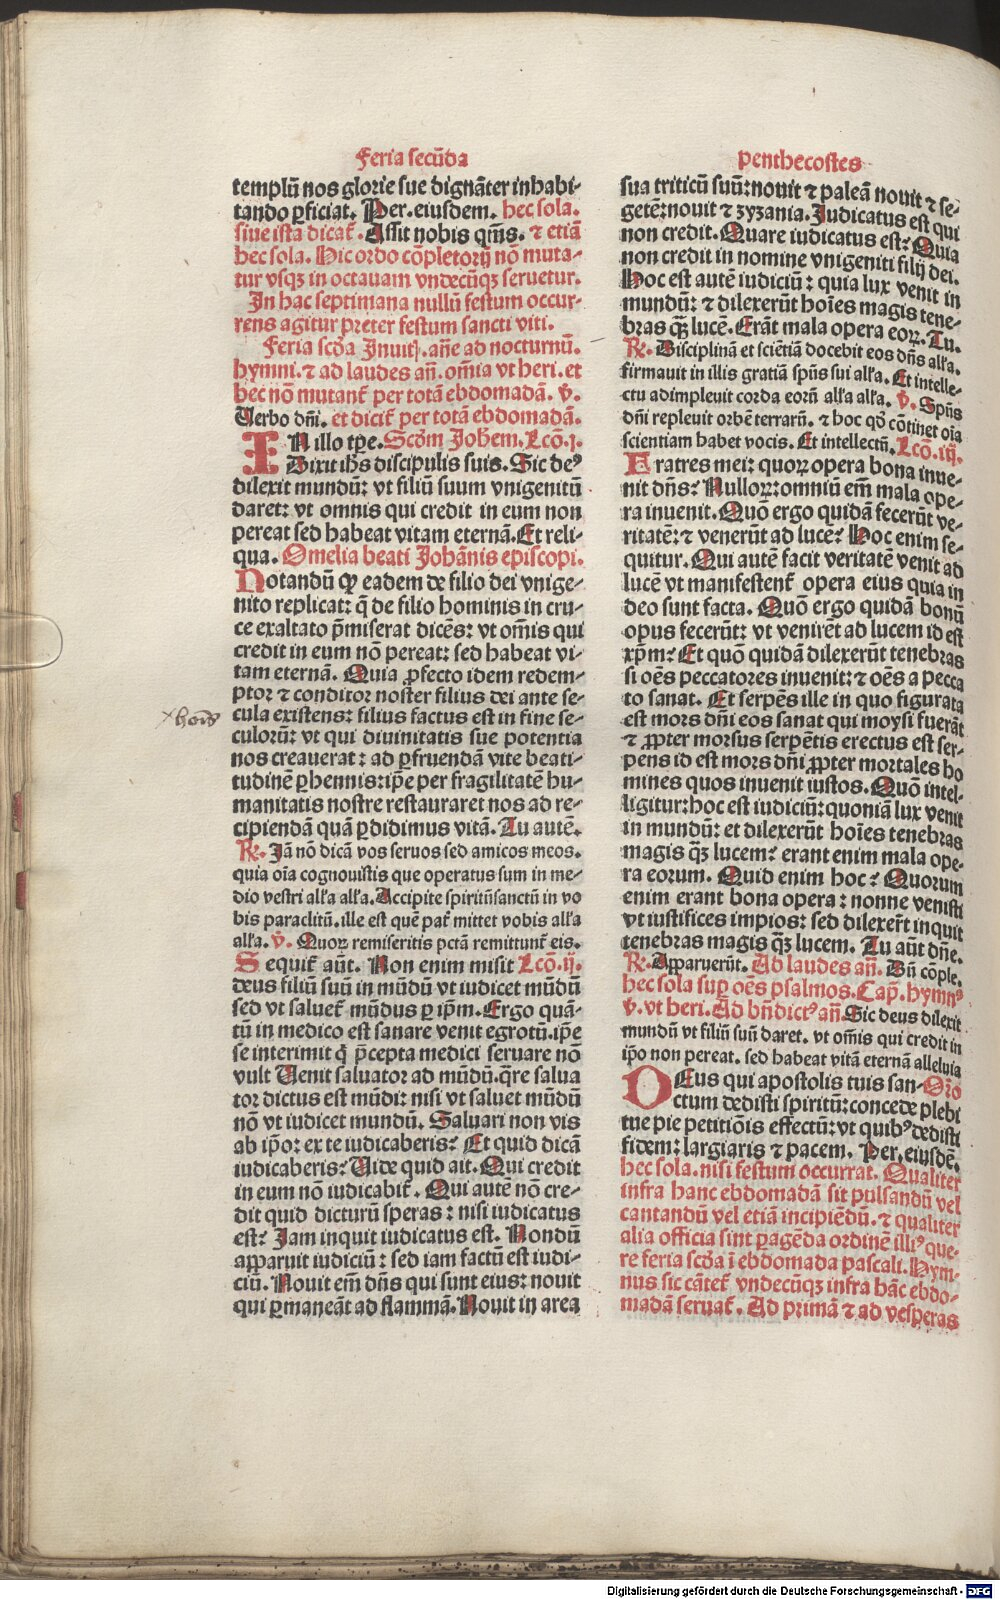 Feria secūda
templū nos glorie sue dignāter inhabi-
tando ꝑficiat. Per. eiusdem. hec sola.
siue ista dicat᷑. Assit nobis qm̄s. ⁊ etiā
hec sola. Hic ordo cōpletorij nō muta-
tur vsqꝫ in octauam vndecūqꝫ seruetur.
In hac septimana nullū festum occur-
rens agitur preter festum sancti viti.
Feria scd̄a Inuit. añe ad nocturnū.
hymni. ⁊ ad laudes añ. om̄ia vt heri. et
hec nō mutant᷑ per totā ebdomadā. v̄.
Uerbo dn̄i. et dicit᷑ per totā ebdomadā.
IN illo tp̄e. Scd̄m Joh̄em. Lcō. j.
Dixit ih̄s discipulis suis. Sic deꝰ
dilexit mundū: vt filiū suum vnigenitū
daret: vt omnis qui credit in eum non
pereat sed habeat vitam eternā. Et reli-
qua. Omelia beati Johānis episcopi.
Notandū ꝙ eadem de filio dei vnige-
nito replicat: q̄ de filio hominis in cru-
ce exaltato p̄miserat dicēs: vt om̄is qui
credit in eum nō pereat: sed habeat vi-
tam eternā. Quia ꝓfecto idem redem-
ptor ⁊ conditor noster filius dei ante se-
cula existens: filius factus est in fine se-
culorū: vt qui diuinitatis sue potentia
nos creauerat: ad ꝑfruendā vite beati-
tudinē ꝑhennis: ip̄e per fragilitatē hu-
manitatis nostre restauraret nos ad re-
cipiendā quā ꝑdidimus vitā. Tu autē.
℟. Jā nō dicā vos seruos sed amicos meos.
quia oīa cognouistis que operatus sum in me-
dio vestri alľa alľa. Accipite spiritūsanctū in vo
bis paraclitū. ille est quē pat᷑ mittet vobis alľa
alľa. v̄. Quoꝝ remiseritis pctā remittunt᷑ eis.
Sequit᷑ aūt. Non enim misit Lcō. ij.
deus filiū suū in mūdū vt iudicet mūdū
sed vt saluet᷑ mūdus ꝑ ip̄m. Ergo quā-
tū in medico est sanare venit egrotū. ip̄e
se interimit q̄ p̄cepta medici seruare nō
vult Uenit saluator ad mūdū. q̄re salua
tor dictus est mūdi: nisi vt saluet mūdū
nō vt iudicet mundū. Saluari non vis
ab ip̄o: ex te iudicaberis? Et quid dicā
iudicaberis? Uide quid ait. Qui credit
in eum nō iudicabit᷑. Qui autē nō cre-
dit quid dicturū speras: nisi iudicatus
est? Jam inquit iudicatus est. Nondū
apparuit iudiciū: sed iam factū est iudi-
ciū. Nouit em̄ dn̄s qui sunt eius: nouit
qui ꝑmaneāt ad flammā. Nouit in area
penthecostes
sua triticū suū: nouit ⁊ paleā nouit ⁊ se-
getē: nouit ⁊ zyzania. Judicatus est qui
non credit. Quare iudicatus est? Quia
non credit in nomine vnigeniti filij dei.
Hoc est autē iudiciū: quia lux venit in
mundū: ⁊ dilexerūt hoīes magis tene-
bras qꝫ lucē. Erāt mala opera eoꝝ. Tu.
℟. Disciplinā et sciētiā docebit eos dn̄s alľa.
firmauit in illis gratiā spūs sui alľa. Et intelle-
ctu adimpleuit corda eorū alľa alľa. v̄. Spūs
dn̄i repleuit orbē terrarū. ⁊ hoc qd̄ cōtinet oīa
scientiam habet vocis. Et intellectū. Lcō. iij.
Fratres mei: quoꝝ opera bona inue-
nit dn̄s? Nulloꝝ: omniū em̄ mala ope-
ra inuenit. Quō ergo quidā fecerūt ve-
ritatē: ⁊ venerūt ad lucē? Hoc enim se-
quitur. Qui autē facit veritatē venit ad
lucē vt manifestent᷑ opera eius quia in
deo sunt facta. Quō ergo quidā bonū
opus fecerūt: vt venirēt ad lucem id est
xp̄m? Et quō quidā dilexerūt tenebras
si oēs peccatores inuenit: ⁊ oēs a pecca
to sanat. Et serpēs ille in quo figurata
est mors dn̄i eos sanat qui moysi fuerāt
⁊ ꝓpter morsus serpētis erectus est ser-
pens id est mors dn̄i ꝓpter mortales ho
mines quos inuenit iustos. Quō intel-
ligitur: hoc est iudiciū: quoniā lux venit
in mundū: et dilexerūt hoīes tenebras
magis qꝫ lucem? erant enim mala ope-
ra eorum. Quid enim hoc? Quorum
enim erant bona opera: nonne venisti
vt iustifices impios: sed dilexerūt inquit
tenebras magis qꝫ lucem. Tu aūt dn̄e.
℟. Apparuerūt. Ad laudes añ. Dū cōple.
hec sola suꝑ oēs psalmos. Cap. hymnꝰ
v̄. vt heri. Ad bn̄dictꝰ añ. Sic deus dilexit
mundū vt filiū suū daret. vt om̄is qui credit in
ip̄o non pereat. sed habeat vitā eternā alleluia
DEus qui apostolis tuis san- Oro
ctum dedisti spiritū: concede plebi
tue pie petitiōis effectū: vt quibꝰ dedisti
fidem: largiaris ⁊ pacem. Per. eiusdē.
hec sola. nisi festum occurrat. Qualiter
infra hanc ebdomadā sit pulsandū vel
cantandū vel etiā incipiēdū. ⁊ qualiter
alia officia sint ꝑagēda ordinē illiꝰ que-
re feria scd̄a ī ebdomada pascali. Hym-
nus sic cātet᷑ vndecūqꝫ infra hāc ebdo-
madā seruat᷑. Ad primā ⁊ ad vesperas
Digitalisierung gefördert durch die Deutsche Forschungsgemeinschaft - DFG